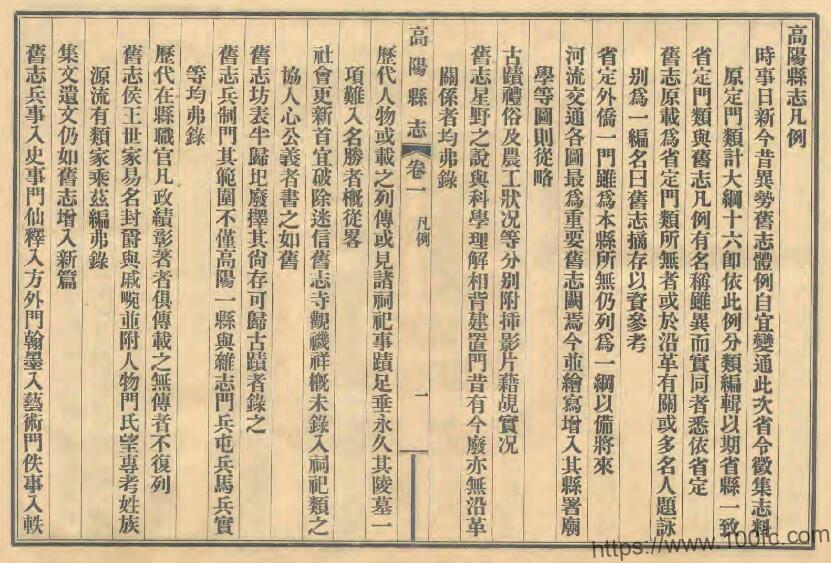 高陽縣志凡例
時事日新今昔異勢舊志體例自宜變通此次省令徵集志料
原定門類計大綱十六卽依此例分類編輯以期省縣一致
省定門類與舊志凡例有名稱雖異而實同者悉依省定
舊志原載爲省定門類所無者或於沿革有關或多名人題詠
别爲一編名曰舊志摘存以資參考
省定外僑一門雖爲本縣所無仍列爲一綱以備將來
河流交通各圖最爲重要舊志闕焉今並繪寫增入其縣署廟
學等圖則從略
古蹟禮俗及農工狀况等分别附揷影片藉覘實况
舊志星野之說與科學理解相背建置門昔有今廢亦無沿革
關係者均弗錄
高陽縣志
卷一
凡例
一
歷代人物或載之列傳或見諸祠祀事蹟足垂永久其陵墓一
項難入名勝者概從畧
社會更新首宜破除迷信舊志寺觀禨祥概未錄入祠祀類之
協人心公義者書之如舊
舊志坊表半歸圯廢擇其尙存可歸古蹟者錄之
舊志兵制門其範圍不僅高陽一縣與雜志門兵屯兵馬兵實
等均弗錄
歷代在縣職官凡政績彰著者俱傳載之無傳者不復列
舊志侯王世家易名封爵與戚畹並附人物門氏望專考姓族
源流有類家乘茲編弗錄
集文遺文仍如舊志增入新篇
舊志兵事入史事門仙釋入方外門翰墨入藝術門佚事入軼
https://www.100fc.com